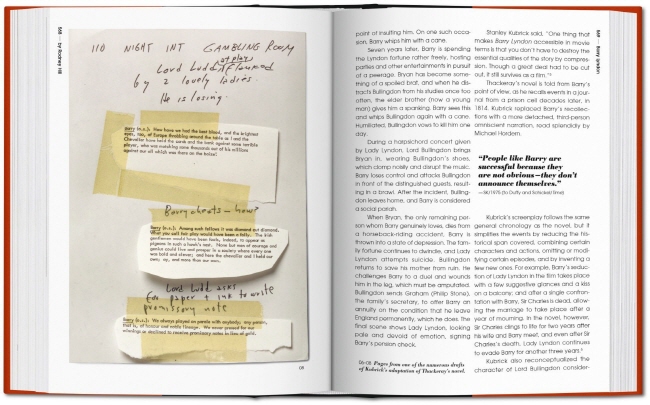 568 — by Rodney Hill
110 NIGHT INT GAMBLING ROOM
at play
Lord Ludd, flanked
by 2 lovely ladies.
He is losing.
Barry (o.s.): Here we had the best blood, and the brightest
eyes, too, of Europe thronging around the table as I and the
Chevalier have held the cards and the bank against some terrible
player, who was matching some thousands out of his millions
against our all which was there on the baize!
Barry cheats — how?
Barry (o.s.): Among such fellows it was diamond cut diamond.
What you call fair play would have been a folly. The Irish
gentlemen would have been fools, indeed, to appear as
pigeons in such a hawk's nest. None but men of courage and
genius could live and prosper in a society where every one
was bold and clever; and here the chevalier and I held our
own: ay, and more than our own.
Lord Ludd asks
for paper + ink to write
promissory note
Barry (o.s.): We always played on parole with anybody; any person,
that is, of honour and noble lineage. We never pressed for our
winnings or declined to receive promissory notes in lieu of gold.
08
point of insulting him. On one such occa-
sion, Barry whips him with a cane.
Seven years later, Barry is spending
the Lyndon fortune rather freely, hosting
parties and other entertainments in pursuit
of a peerage. Bryan has become some-
thing of a spoiled brat, and when he dis-
tracts Bullingdon from his studies once too
often, the elder brother (now a young
man) gives him a spanking. Barry sees this
and whips Bullingdon again with a cane.
Humiliated, Bullingdon vows to kill him one
day.
During a harpsichord concert given
by Lady Lyndon, Lord Bullingdon brings
Bryan in, wearing Bullingdon's shoes,
which clamp noisily and disrupt the music.
Barry loses control and attacks Bullingdon
in front of the distinguished guests, result-
ing in a brawl. After the incident, Bulling-
don leaves home, and Barry is considered
a social pariah.
When Bryan, the only remaining per-
son whom Barry genuinely loves, dies from
a horseback-riding accident, Barry is
thrown into a state of depression. The fam-
ily fortune continues to dwindle, and Lady
Lyndon attempts suicide. Bullingdon
returns to save his mother from ruin. He
challenges Barry to a duel and wounds
him in the leg, which must be amputated.
Bullingdon sends Graham (Philip Stone),
the family's secretary, to offer Barry an
annuity on the condition that he leave
England permanently, which he does. The
final scene shows Lady Lyndon, looking
pale and devoid of emotion, signing
Barry's pension check.
06–08 Pages from one of the numerous drafts
of Kubrick's adaptation of Thackeray's novel.
Stanley Kubrick said, "One thing that
makes Barry Lyndon accessible in movie
terms is that you don't have to destroy the
essential qualities of the story by compres-
sion. Though a great deal had to be cut
out, it still survives as a film."
Thackeray's novel is told from Barry's
point of view, as he recalls events in a jour-
nal from a prison cell decades later, in
1814. Kubrick replaced Barry's recollec-
tions with a more detached, third-person
omniscient narration, read splendidly by
Michael Hordern.
"People like Barry are
successful because they
are not obvious—they don't
announce themselves."
—SK/1975 (to Duffy and Schickel/Time)
Kubrick's screenplay follows the same
general chronology as the novel, but it
simplifies the events by reducing the his-
torical span covered, combining certain
characters and actions, omitting or modi-
fying certain episodes, and by inventing a
few new ones. For example, Barry's seduc-
tion of Lady Lyndon in the film takes place
with a few suggestive glances and a kiss
on a balcony; and after a single confron-
tation with Barry, Sir Charles is dead, allow-
ing the marriage to take place after a
year of mourning. In the novel, however,
Sir Charles clings to life for two years after
his wife and Barry meet, and even after Sir
Charles's death, Lady Lyndon continues
to evade Barry for another three years.
Kubrick also reconceptualized the
character of Lord Bullingdon consider-
569 — Barry Lyndon